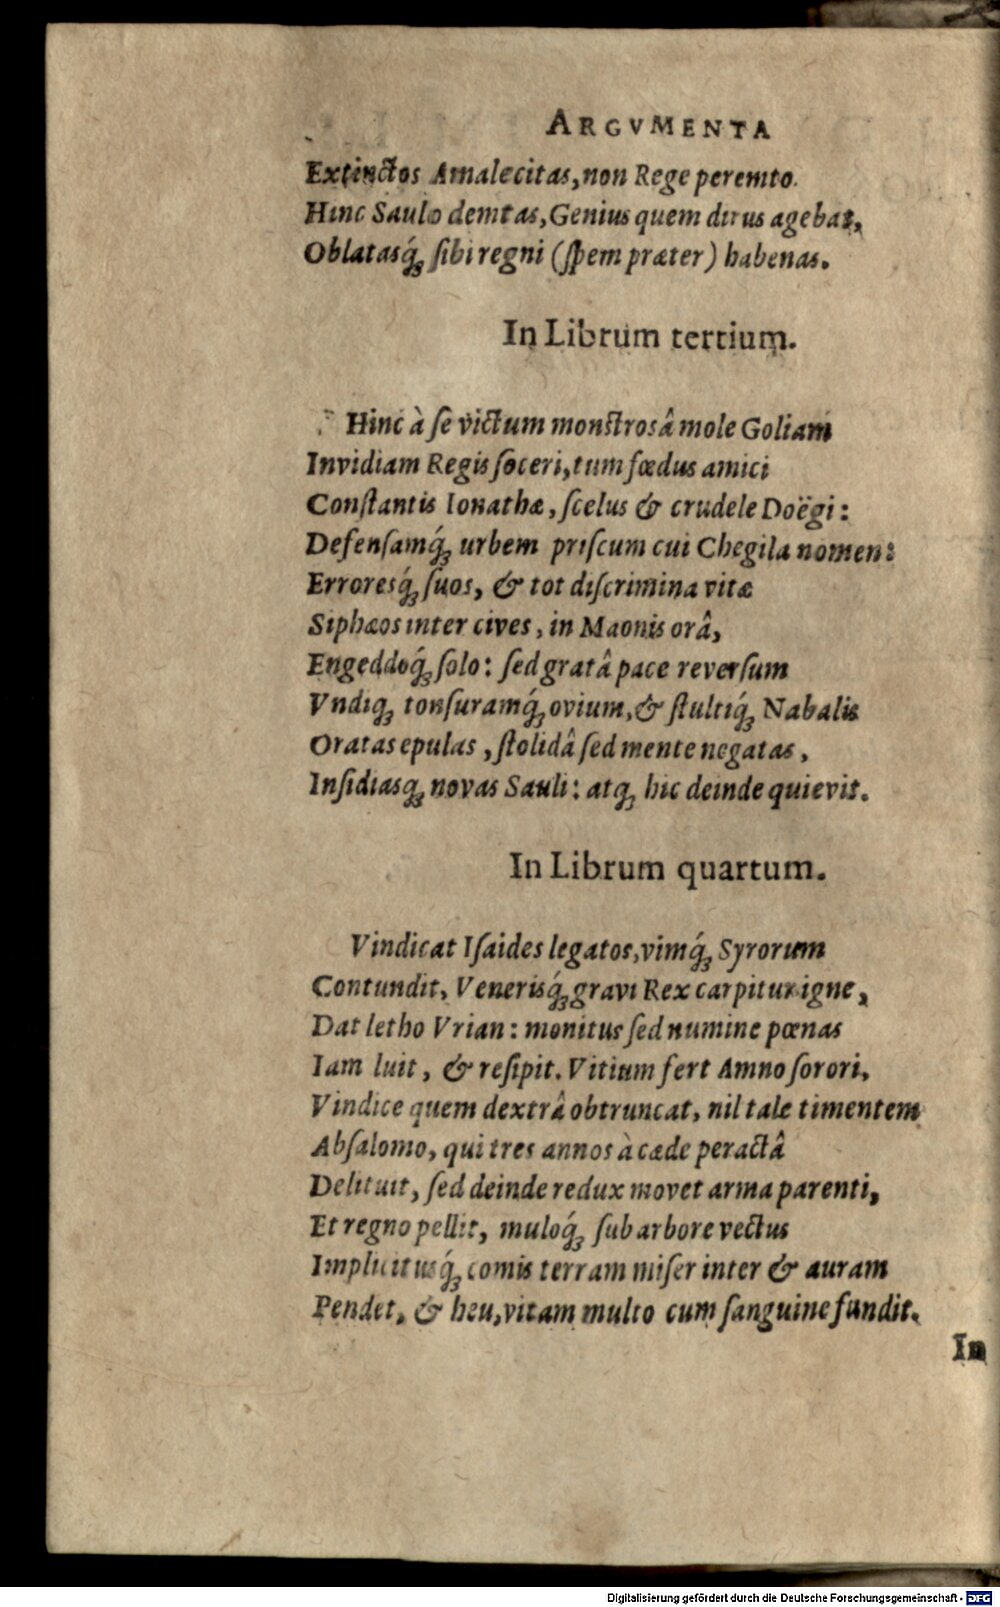 ARGVMENTA
Extinctos Amalecitas, non Rege peremto.
Hinc Saulo demtas, Genius quem dirus agebat,
Oblatasq́ꝫ ſibi regni (ſpem præter) habenas.
In Librum tertium.
Hinc à ſe victum monſtrosâ mole Goliam
Invidiam Regis ſoceri, tum fœdus amici
Conſtantis Ionathæ, ſcelus & crudele Doëgi:
Defenſamq́ꝫ urbem priſcum cui Chegila nomen:
Erroresq́ꝫ ſuos, & tot diſcrimina vitæ
Siphæos inter cives, in Maonis orâ,
Engeddoq́ꝫ ſolo: ſed gratâ pace reverſum
Vndiqꝫ tonſuramq́ꝫ ovium, & ſtultiq́ꝫ Nabalis
Oratas epulas, ſtolidâ ſed mente negatas,
Inſidiasqꝫ novas Sauli: atqꝫ hic deinde quievit.
In Librum quartum.
Vindicat Iſaides legatos, vimq́ꝫ Syrorum
Contundit, Venerisq́ꝫ gravi Rex carpitur igne,
Dat letho Vrian: monitus ſed numine pœnas
Iam luit, & reſipit. Vitium fert Amno ſorori,
Vindice quem dextrâ obtruncat, nil tale timentem
Abſalomo, qui tres annos à cæde peractâ
Delituit, ſed deinde redux movet arma parenti,
Et regno pellit, muloq́ꝫ ſub arbore vectus
Implicitusq́ꝫ comis terram miſer inter & auram
Pendet, & heu, vitam multo cum ſanguine fundit.
In
Digitalisierung gefördert durch die Deutsche Forschungsgemeinschaft - DFG